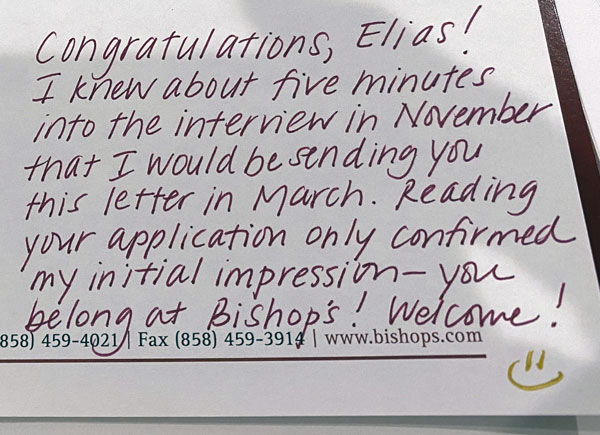 Congratulations, Elias!
I knew about five minutes
into the interview in November
that I would be sending you
this letter in March. Reading
your application only confirmed
my initial impression— you
belong at Bishop's! Welcome!
858) 459-4021 | Fax (858) 459-3914 | www.bishops.com